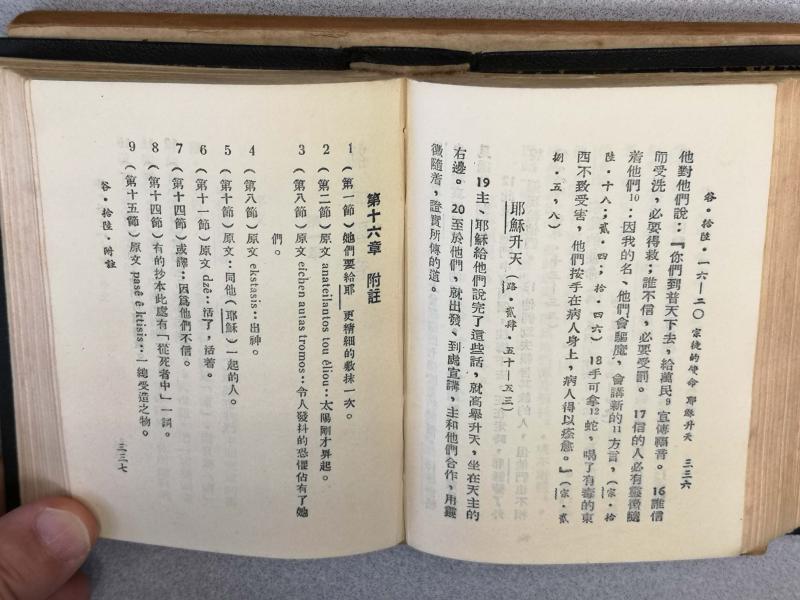 谷·拾陸·一六—二〇 宗徒的使命 耶穌升天 三三六
他對他們說：『你們到普天下去，給萬民9宣傳福音。16誰信
而受洗，必要得救；誰不信，必要受罰。17信的人必有靈徵隨
着他們10：因我的名、他們會驅魔，會講新的11方言，（宗·拾
陸·十八；貳·四；拾·四六）18手可拿12蛇，喝了有毒的東
西不致受害，他們按手在病人身上，病人得以痊愈。』（宗·貳
捌·五，八）
耶穌升天（路·貳肆·五十—五三）
19主、耶穌給他們說完了這些話，就高舉升天，坐在天主的
右邊。20至於他們，就出發、到處宣講，主和他們合作，用靈
徵隨着，證實所傳的道。
第十六章 附註
1（第一節）她們要給耶 更精細的敷抹一次。
2（第二節）原文 anateilantos tou êliou：太陽剛才昇起。
3（第八節）原文 eichen autas tromos：令人發抖的恐懼佔有了她
們。
4（第八節）原文 ekstasis：出神。
5（第十節）原文：同他（耶穌）一起的人。
6（第十一節）原文 dzê：活了，活着。
7（第十四節）或譯：因爲他們不信。
8（第十四節）有的抄本此處有「從死者中」一詞。
9（第十五節）原文 pasê ê ktisis：一總受造之物。
谷·拾陸·附註 三三七